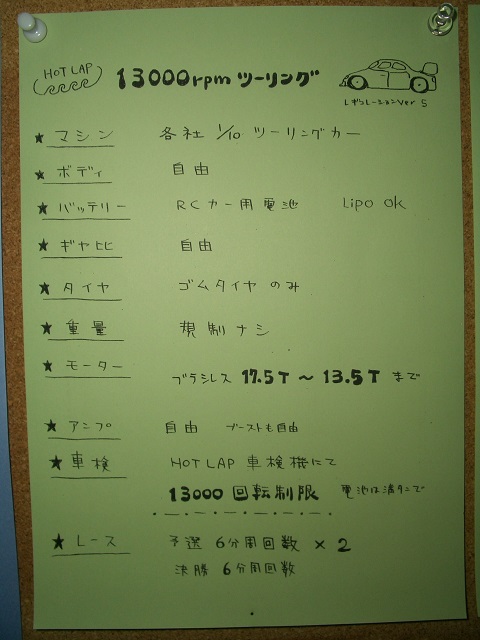 HOT LAP 13000rpm ツーリング
レギュレーションver 5
★ マシン 各社 1/10 ツーリングカー
★ ボディ 自由
★ バッテリー RCカー用電池 Lipo OK
★ ギヤ比 自由
★ タイヤ ゴムタイヤ のみ
★ 重量 規制ナシ
★ モーター ブラシレス 17.5T 〜 13.5T まで
★ アンプ 自由 ブーストも自由
★ 車検 HOT LAP 車検機にて
13000 回転制限 電池は満タンで
★ レース 予選 6分周回数 × 2
決勝 6分周回数